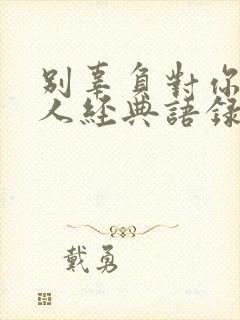 别辜負對你
人經典語錄
戴勇